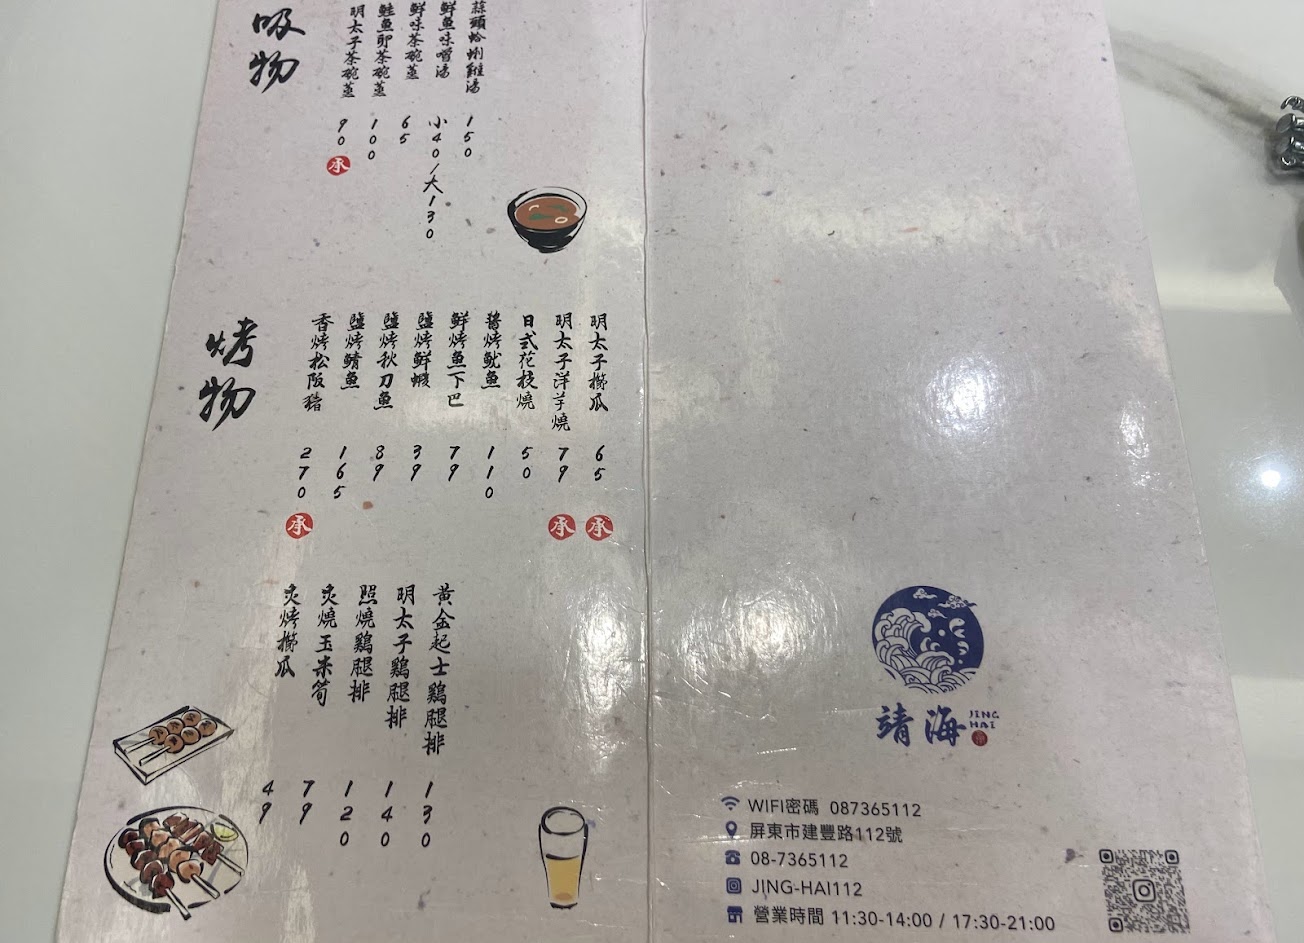 吸物
蒜頭蛤蜊雞湯 150
鮮魚味噌湯 小40/大130
鮮味茶碗蒸 65
鮭魚卵茶碗蒸 100
明太子茶碗蒸 90 承
烤物
明太子櫛瓜 65 承
明太子洋芋燒 79 承
日式花枝燒 50
醬烤魷魚 110
鮮烤魚下巴 79
鹽烤鮮蝦 39
鹽烤秋刀魚 89
鹽烤鯖魚 165
香烤松阪豬 270 承
黃金起士鷄腿排 130
明太子鷄腿排 140
照燒鷄腿排 120
炙燒玉米筍 79
炙烤櫛瓜 49
靖海 JING HAI
WIFI密碼 087365112
屏東市建豐路112號
08-7365112
JING-HAI112
營業時間 11:30-14:00 / 17:30-21:00